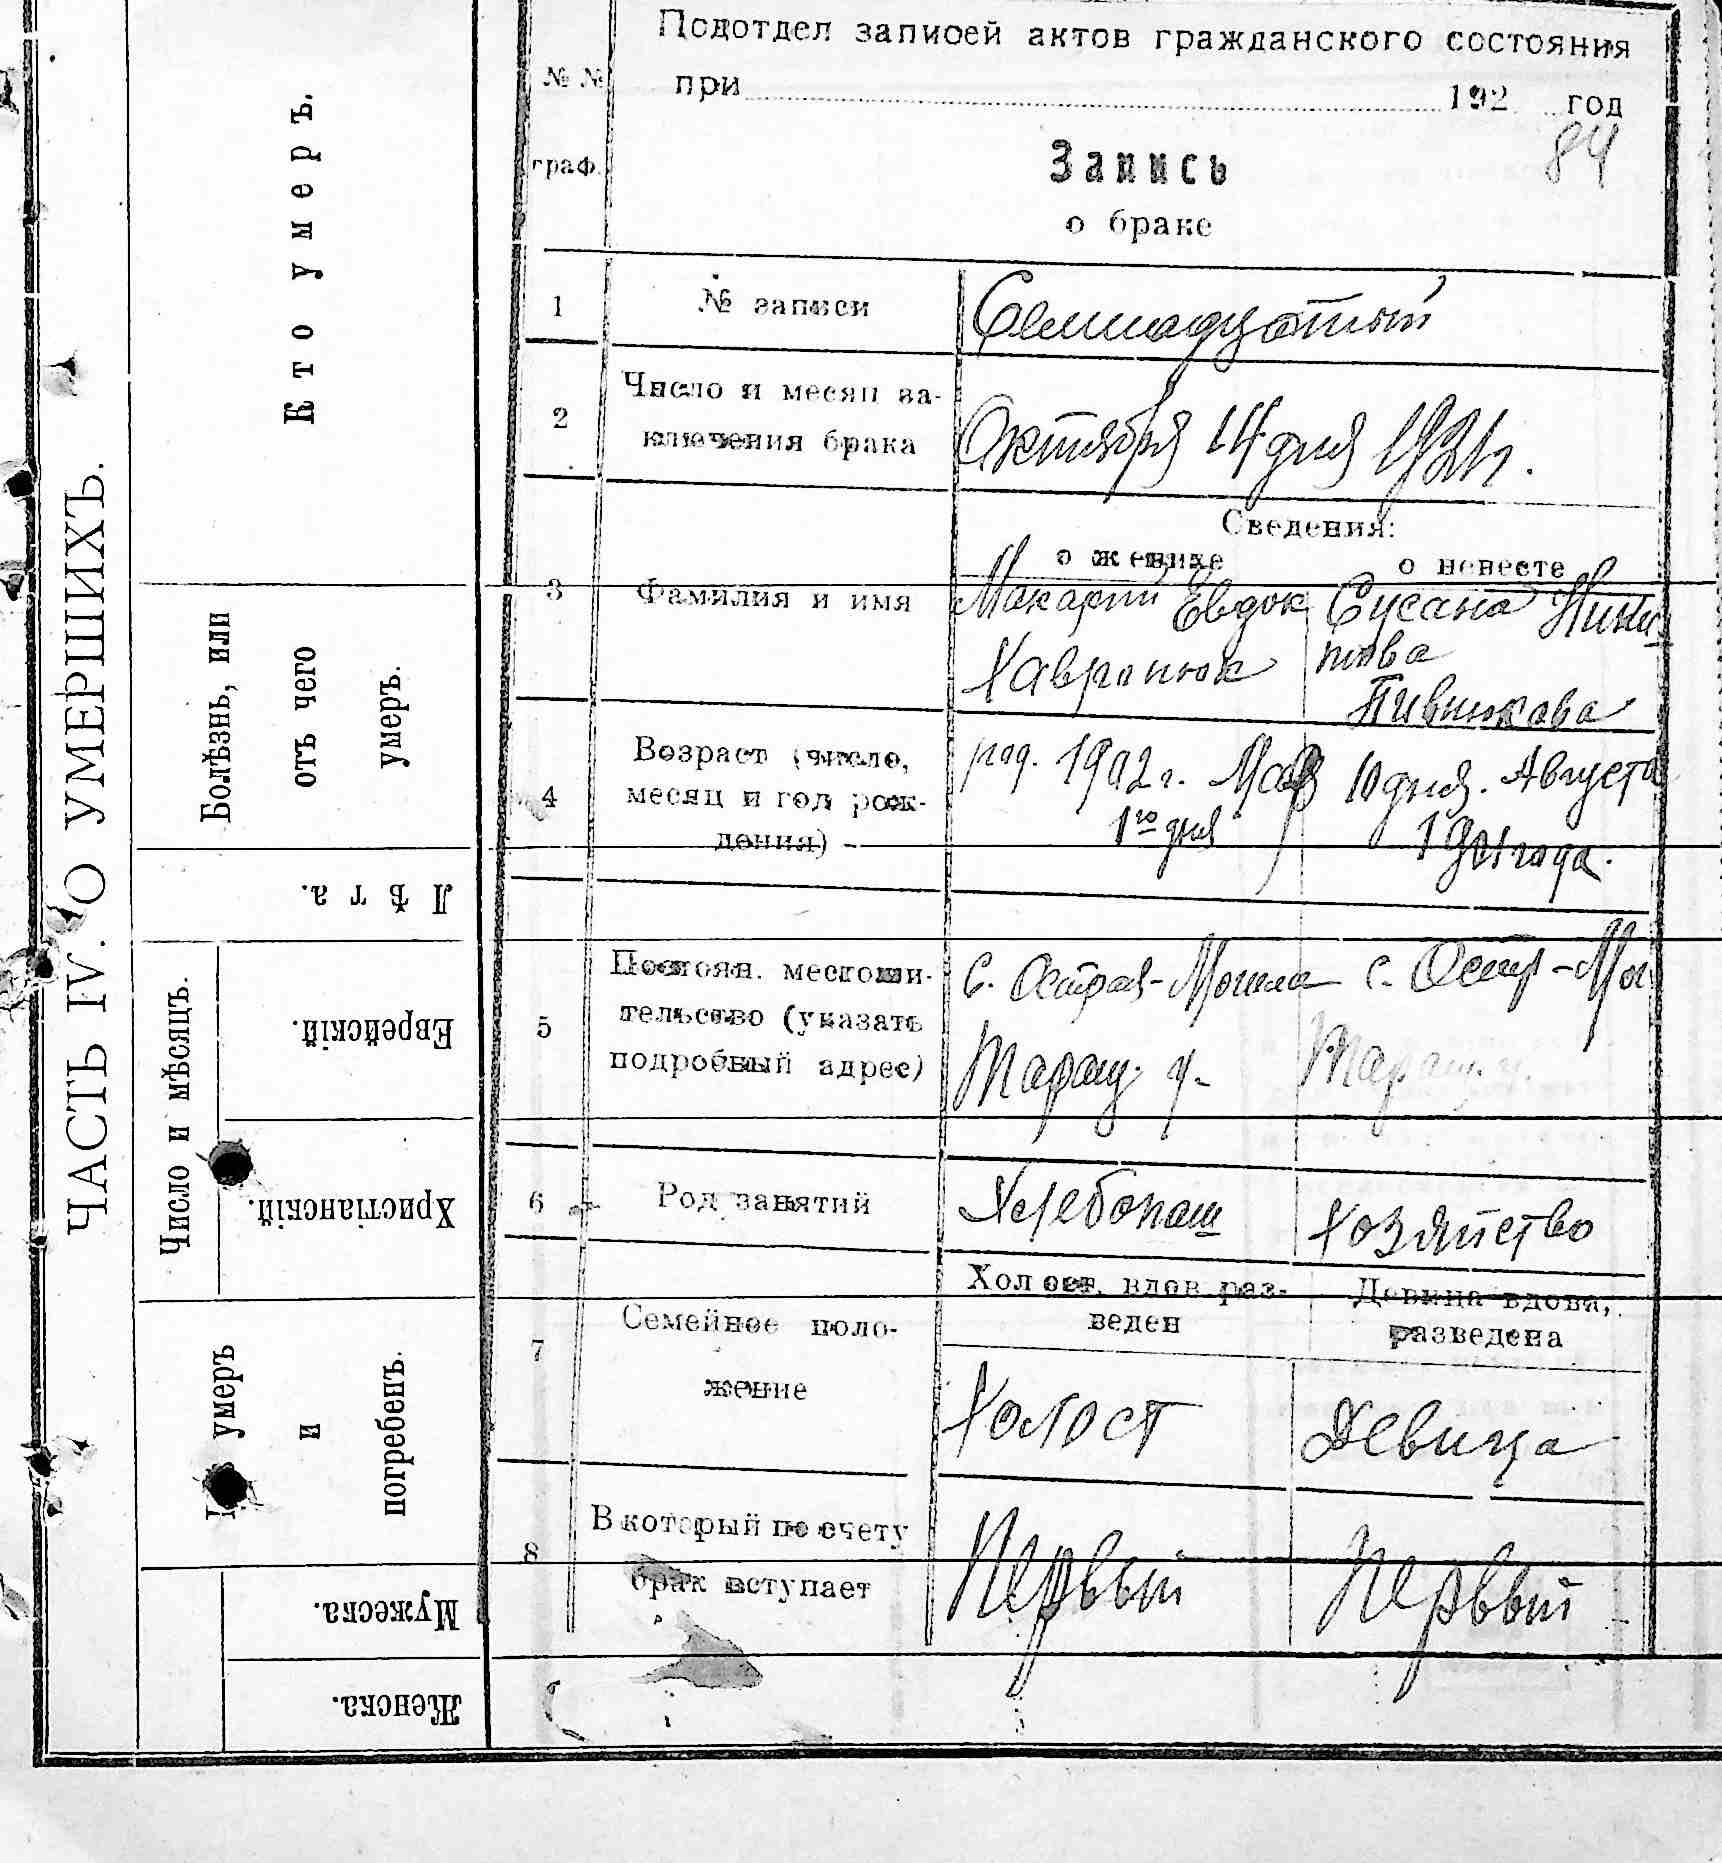 Подотдел записей актов гражданского состояния
при 192 год
84
№ №
граф.
Запись
о браке
1 № записи Семнадцатый
2 Число и месяц за-
ключения брака Октября 14 дня 1921 г.
Сведения:
о женихе о невесте
3 Фамилия и имя Макарий Евдок Сусана Ники
Хавронюк това
Пивнюкова
4 Возраст (число,
месяц и год рож-
дения)
род. 1902 г. 10 дня. Августа
1го дня 1901 года.
5 Постоян. местожи-
тельство (указать
подробный адрес)
с. Острая-Могила с. Остр-Мог
Таращ. у- Таращ. у.
6 Род занятий Хлебопаш хозяйство
7 Семейное поло-
жение
Холост, вдов, раз-
веден
Девица вдова,
разведена
Холост Девица
8 В который по счету
брак вступает
Первый Первый
ЧАСТЬ IV. О УМЕРШИХЪ.
Кто умеръ.
Болѣзнь, или
отъ чего
умеръ.
Лѣта.
Число и мѣсяцъ.
Еврейскій.
Христіанскій.
умеръ
и
погребенъ.
Мужеска.
Женска.